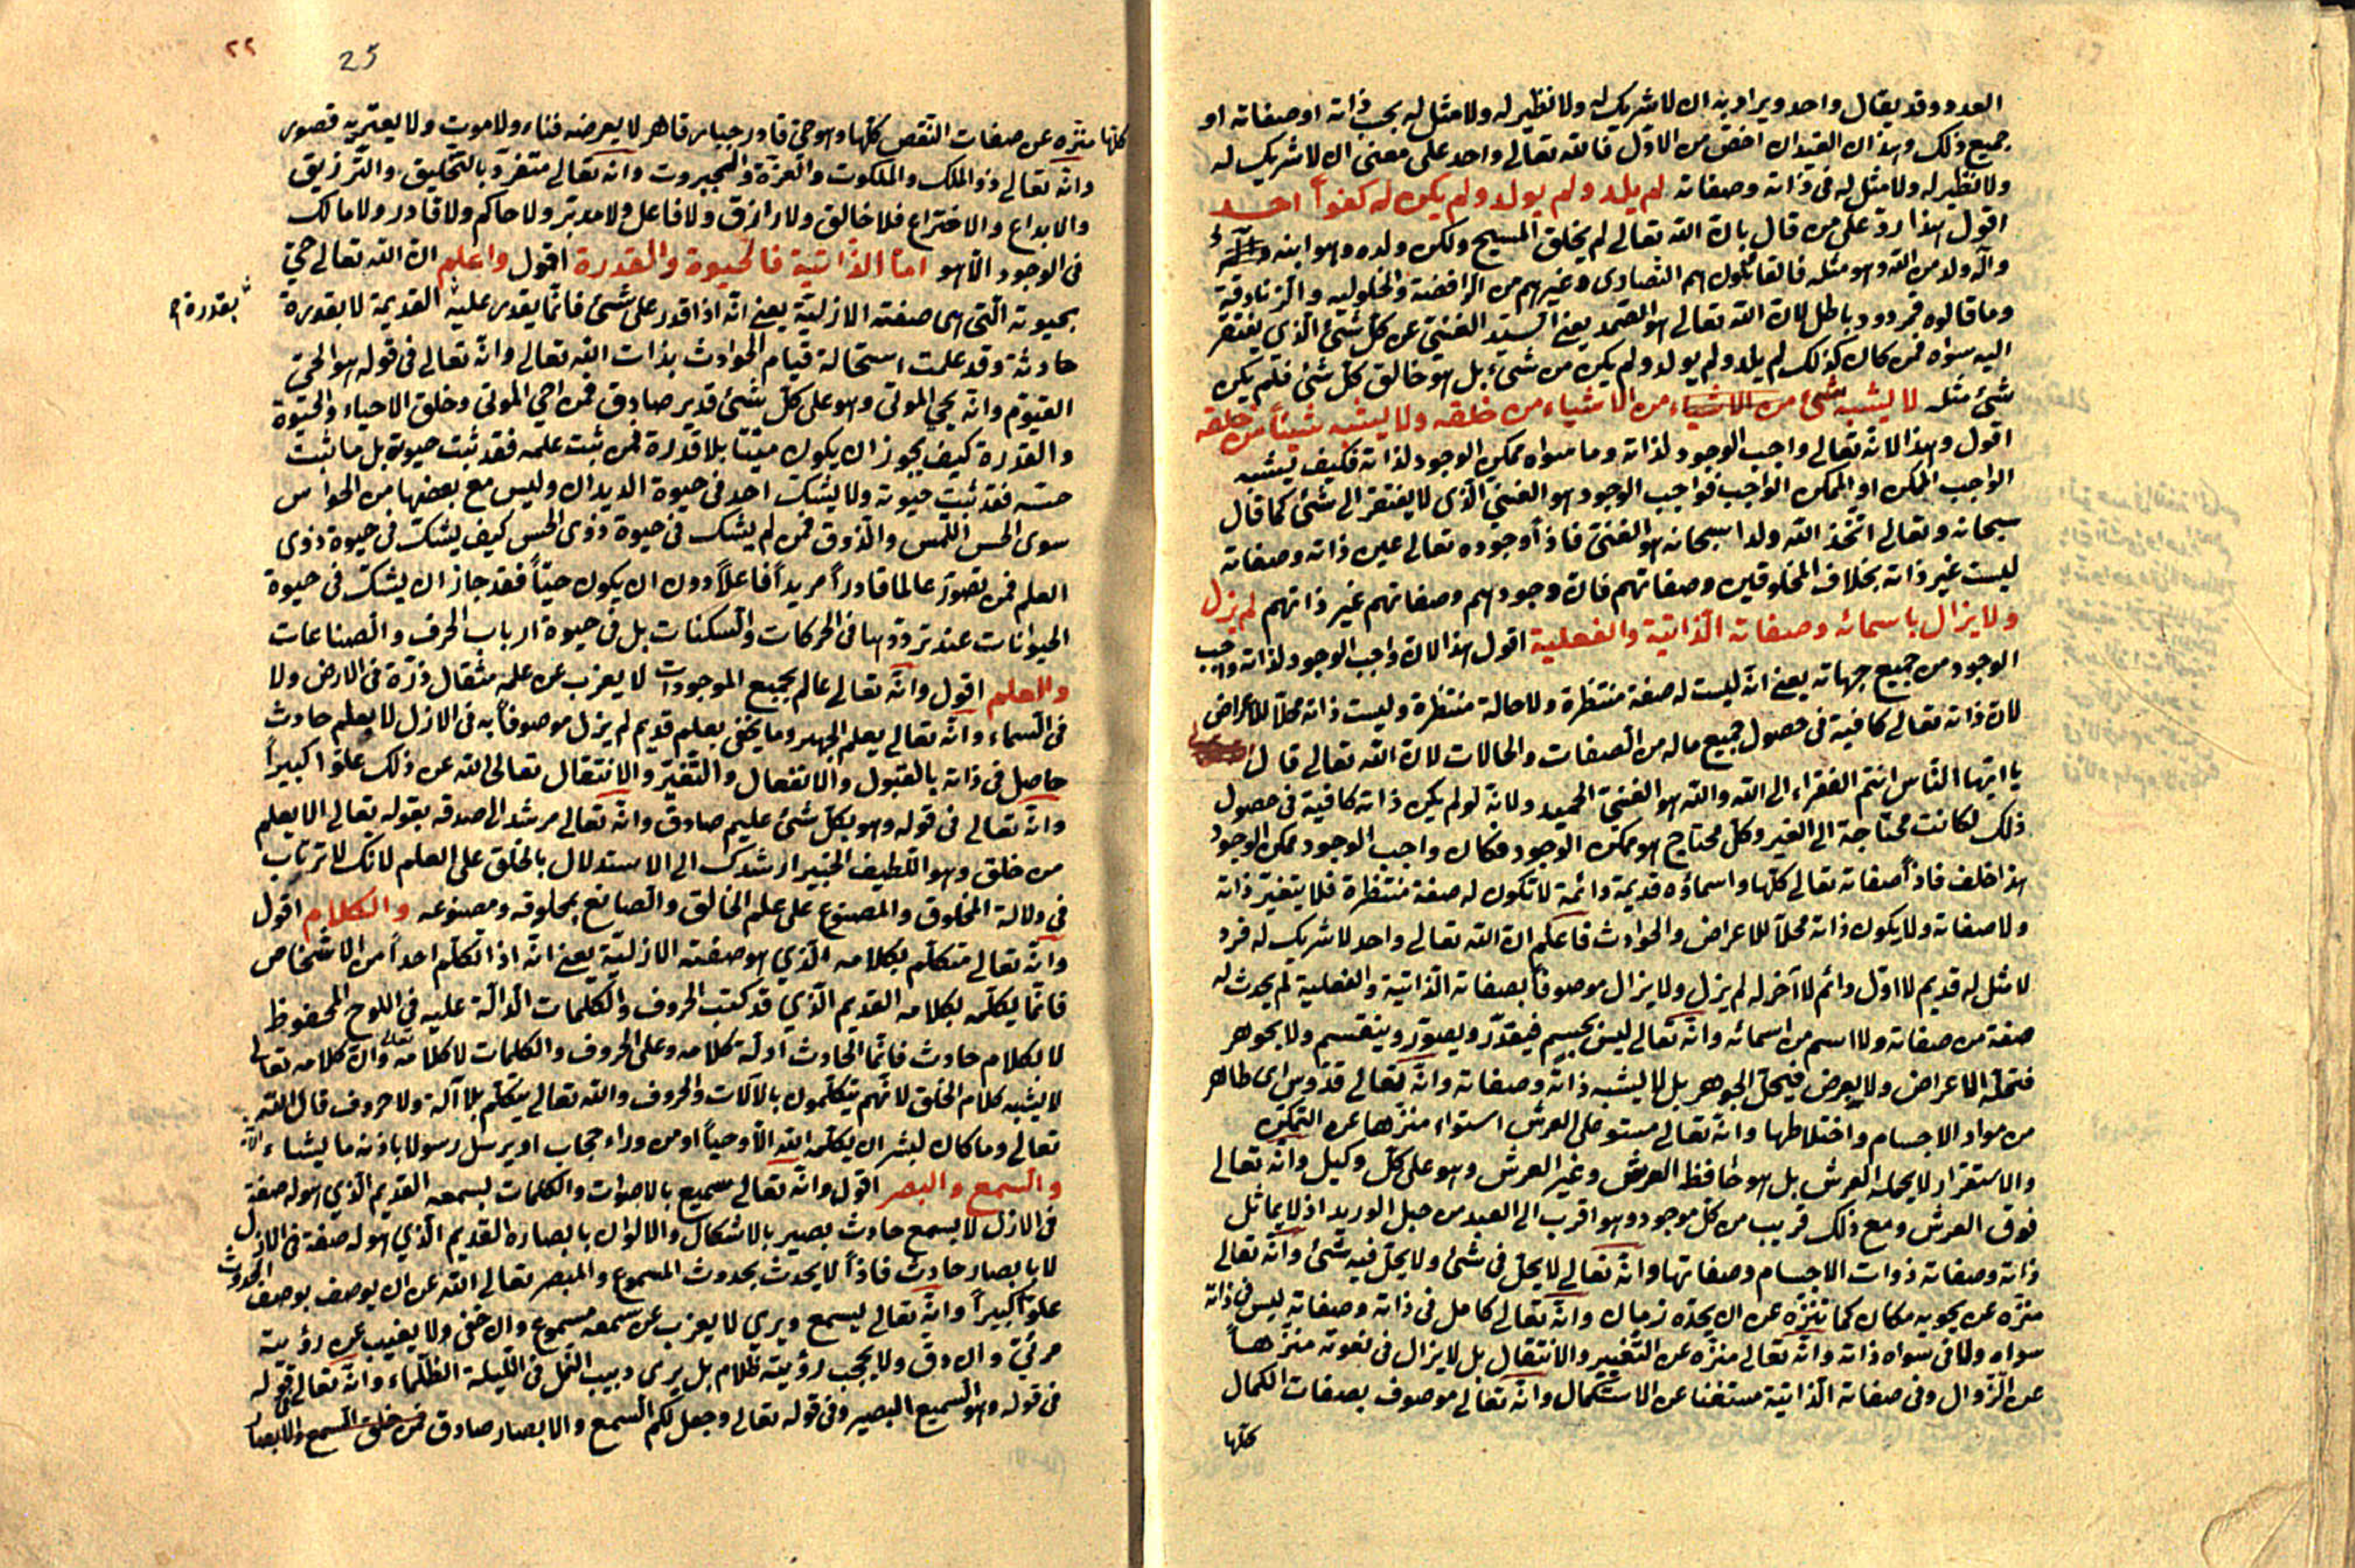 العدد وقد يقال واحد ويراد به ان لا شريك له ولا نظير له ولا مثل له بحب ذاته او صفاته او
جميع ذلك وهذا ان القيدان اخص من الاول فالله تعالى واحد على معنى ان لا شريك له
ولا نظير له ولا مثل له في ذاته وصفاته لم يلد ولم يولد ولم يكن له كفوا احد
اقول هذا رد على من قال بان الله تعالى لم يخلق المسيح ولكن ولده وهو ابنه
وانه ولد من الله وهو مثله فالقائلون هم النصارى وغيرهم من الرافضة والحلولية والزنادقة
وما قالوه فمردود باطل لان الله تعالى هو الصمد يعني السيد الغني عن كل شئ الذي يفتقر
اليه سواه فمن كان كذلك لم يلد ولم يولد ولم يكن من شئ بل هو خالق كل شئ فلم يكن
شئ مثله لا يشبه شئ من الاشياء من الاشياء من خلقه ولا يشبه شيئا من خلقه
اقول وهذا لانه تعالى واجب الوجود لذاته وما سواه ممكن الوجود لذاته فكيف يشبه
الواجب الممكن او الممكن الواجب فواجب الوجود هو الغني الذي لا يفتقر الى شئ كما قال
سبحانه وتعالى اتخذ الله ولدا سبحانه هو الغني فاذا وجوده تعالى عين ذاته وصفاته
ليست غير ذاته بخلاف المخلوقين وصفاتهم فان وجودهم وصفاتهم غير ذاتهم لم يزل
ولا يزال باسمائه وصفاته الذاتية والفعلية اقول هذا لان واجب الوجود لذاته واجب
الوجود من جميع جهاته يعني انه ليست له صفة منتظرة ولا حالة منتظرة وليست ذاته محلا للاعراض
لان ذاته تعالى كافية في حصول جميع ماله من الصفات والحالات لان الله تعالى قال
يا ايها الناس انتم الفقراء الى الله والله هو الغني الحميد ولانه لو لم يكن ذاته كافية في حصول
ذلك لكانت محتاجة الى الغير وكل محتاج هو ممكن الوجود فكان واجب الوجود ممكن الوجود
هذا خلف فاذا صفاته تعالى كلها واسماؤه قديمة دائمة لا تكون له صفة منتظرة فلا يتغير ذاته
ولا صفاته ولا يكون ذاته محلا للاعراض والحوادث فاعلم ان الله تعالى واحد لا شريك له فرد
لا مثل له قديم لا اول دائم لا آخر له لم يزل ولا يزال موصوفا بصفاته الذاتية والفعلية لم يحدث له
صفة من صفاته ولا اسم من اسمائه وانه تعالى ليس بجسم فيقدر ويصور وينقسم ولا بجوهر
فتحله الاعراض ولا بعرض فيحل الجوهر بل لا يشبه ذاته وصفاته وانه تعالى قدوس اى طاهر
من مواد الاجسام واختلاطها وانه تعالى مستو على العرش استواء منزها عن التمكن
والاستقرار لا يحمله العرش بل هو حافظ العرش وغير العرش وهو على كل وكيل وانه تعالى
فوق العرش ومع ذلك قريب من كل موجود وهو اقرب الى العبد من حبل الوريد اذ لا يماثل
ذاته وصفاته ذوات الاجسام وصفاتها وانه تعالى لا يحل في شئ ولا يحل فيه شئ وانه تعالى
منزه عن يحويه مكان كما تنزه عن ان يحده زمان وانه تعالى كامل في ذاته وصفاته ليس في ذاته
سواه ولا في سواه ذاته وانه تعالى منزه عن التغيير والانتقال بل لا يزال في نعوته منزها
عن الزوال وفي صفاته الذاتية مستغنا عن الاستكمال وانه تعالى موصوف بصفات الكمال
كلها
٢٢
25
كلها منزه عن صفات النقص كلها وهو حي قادر جبار قاهر لا يعرضه فناء ولا موت ولا يعتريه قصور
وانه تعالى ذو الملك والملكوت والعزة والجبروت وانه تعالى متفرد بالتخليق والترزيق
والابداع والاختراع فلا خالق ولا رازق ولا فاعل ولا مدبر ولا حاكم ولا قادر ولا مالك
في الوجود الا هو اما الذاتية فالحيوة والقدرة اقول واعلم ان الله تعالى حي
بحيوته التي هي صفته الازلية يعني انه اذا قدر على شئ فانما يقدر عليه القديمة لا بقدرة
بقدرة
حادثة وقد علمت استحالة قيام الحوادث بذات الله تعالى وانه تعالى في قوله هو الحي
القيوم وانه يحي الموتى وهو على كل شئ قدير صادق فمن احي الموتى وخلق الاحياء والحيوة
والقدرة كيف يجوز ان يكون ميتا بلا قدرة فمن ثبت علمه فقد ثبت حيوته بل ما ثبت
حسه فقد ثبت حيوته ولا يشك احد في حيوة الديدان وليس مع بعضها من الحواس
سوى الحس اللمس والذوق فمن لم يشك في حيوة ذوى الحس كيف يشك في حيوة ذوى
العلم فمن تصور عالما قادرا مريدا فاعلا دون ان يكون حيا فقد جاز ان يشك في حيوة
الحيوانات عند ترددها في الحركات والسكنات بل في حيوة ارباب الحرف والصناعات
والعلم اقول وانه تعالى عالم بجميع الموجودات لا يعزب عن علمه مثقال ذرة في الارض ولا
في السماء وانه تعالى يعلم الجهر وما يخفى بعلم قديم لم يزل موصوفا به في الازل لا بعلم حادث
حاصل في ذاته بالقبول والانفعال والتغير والانتقال تعالى الله عن ذلك علوا كبيرا
وانه تعالى في قوله وهو بكل شئ عليم صادق وانه تعالى مرشد الى صدقه بقوله تعالى الا يعلم
من خلق وهو اللطيف الخبير ارشدك الى الاستدلال بالخلق على العلم لانك لا ترتاب
في دلالة المخلوق والمصنوع على علم الخالق والصانع بمخلوقه ومصنوعه والكلام اقول
وانه تعالى متكلم بكلامه الذي هو صفته الازلية يعني انه اذا تكلم احدا من الاشخاص
فانما يكلمه بكلامه القديم الذي قد كتب الحروف والكلمات الدالة عليه في اللوح المحفوظ
لا بكلام حادث فانما الحادث ادلة كلامه وعلى الحروف والكلمات لا كلامه تعالى وان كلامه تعالى
لا يشبه كلام الخلق لانهم يتكلمون بالآلات والحروف والله تعالى يتكلم بلا آلة ولا حروف قال الله
تعالى وما كان لبشر ان يكلمه الله الا وحيا او من وراء حجاب او يرسل رسولا باذنه ما يشاء
والسمع والبصر اقول وانه تعالى سميع بالاصوات والكلمات بسمعه القديم الذي هو له صفة
في الازل لا بسمع حادث بصير بالاشكال والالوان بابصاره القديم الذي هو له صفة في الازل
لا بابصار حادث فاذا لا يحدث بحدوث المسموع والمبصر تعالى الله عن ان يوصف بوصف الحدوث
علوا كبيرا وانه تعالى يسمع ويرى لا يعزب عن سمعه مسموع وان خفي ولا يغيب عن رؤيته
مرئي وان دق ولا يحجب رؤيته ظلام بل يرى دبيب النمل في الليلة الظلماء وانه تعالى
في قوله وهو السميع البصير وفي قوله تعالى وجعل لكم السمع والابصار صادق فمن خلق السمع والابصار